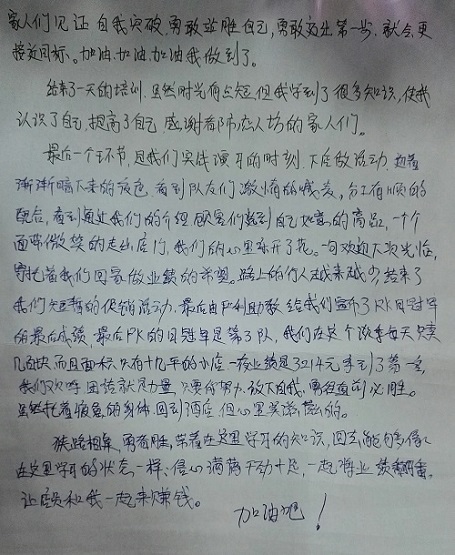 家人们见证自我突破,勇敢战胜自己,勇敢迈出第一步,就会更
接近目标。加油.加油.加油我做到了。
结束了一天的培训.虽然时光有点短.但我学到了很多知识,使我
认识了自己,提高了自己.感谢老师在场的家人们。
最后一个环节,是我们实践演习的时刻.下店做活动,趁着
渐渐暗下来的夜色,看到队友们激情的喊麦,分工有顺的
配合,看到通过我们的介绍,顾客们挑到自己如意的商品,一个个
面带微笑的走出店门,我们的心里乐开了花。一句欢迎下次光临,
寄托着我们回家做业绩的希望。路上的行人越来越少,结束了
我们短暂的促销活动.最后由严利助教给我们宣布了PK日冠军
的最后成绩,最后PK的日冠军是第3队,我们在这个淡季每天只卖
几百块,而且面积只有十几平的小店一夜业绩是3214元拿到了第一名,
我们欢呼,团结就是力量,只要你努力.放下自我.勇往直前必胜。
虽然托着疲惫的身体.回到酒店.但心里美滋滋的。
狭路相逢,勇者胜,带着在这里学习的知识,回去能够像
在这里学习的状态一样,信心满满干劲十足,一起将业绩翻番,
让顾客和我一起来赚钱。
加油吧!